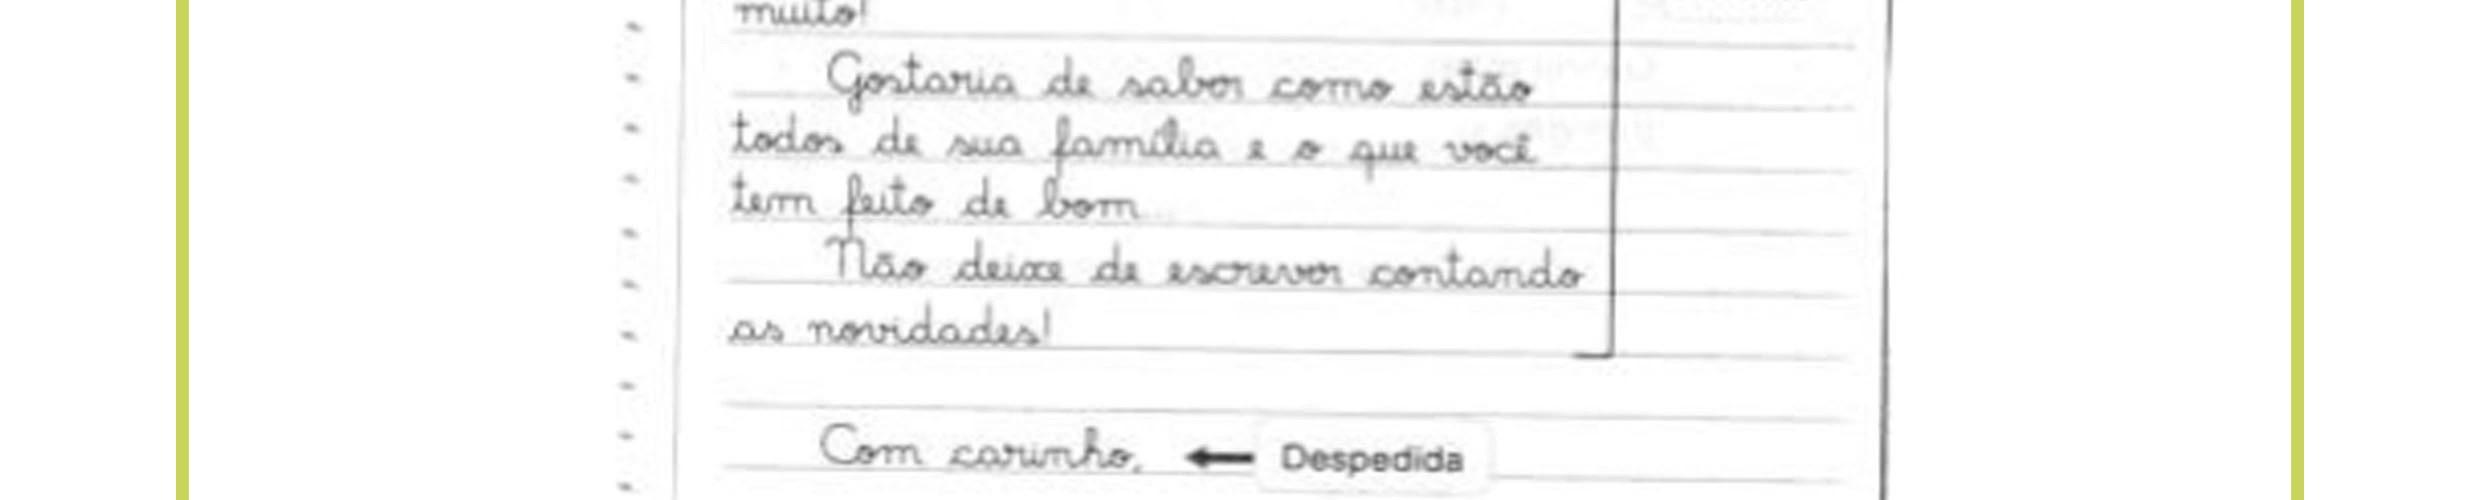 muito!
Gostaria de saber como estão
todos de sua família e o que você
tem feito de bom
Não deixe de escrever contando
as novidades!
Com carinho, Despedida